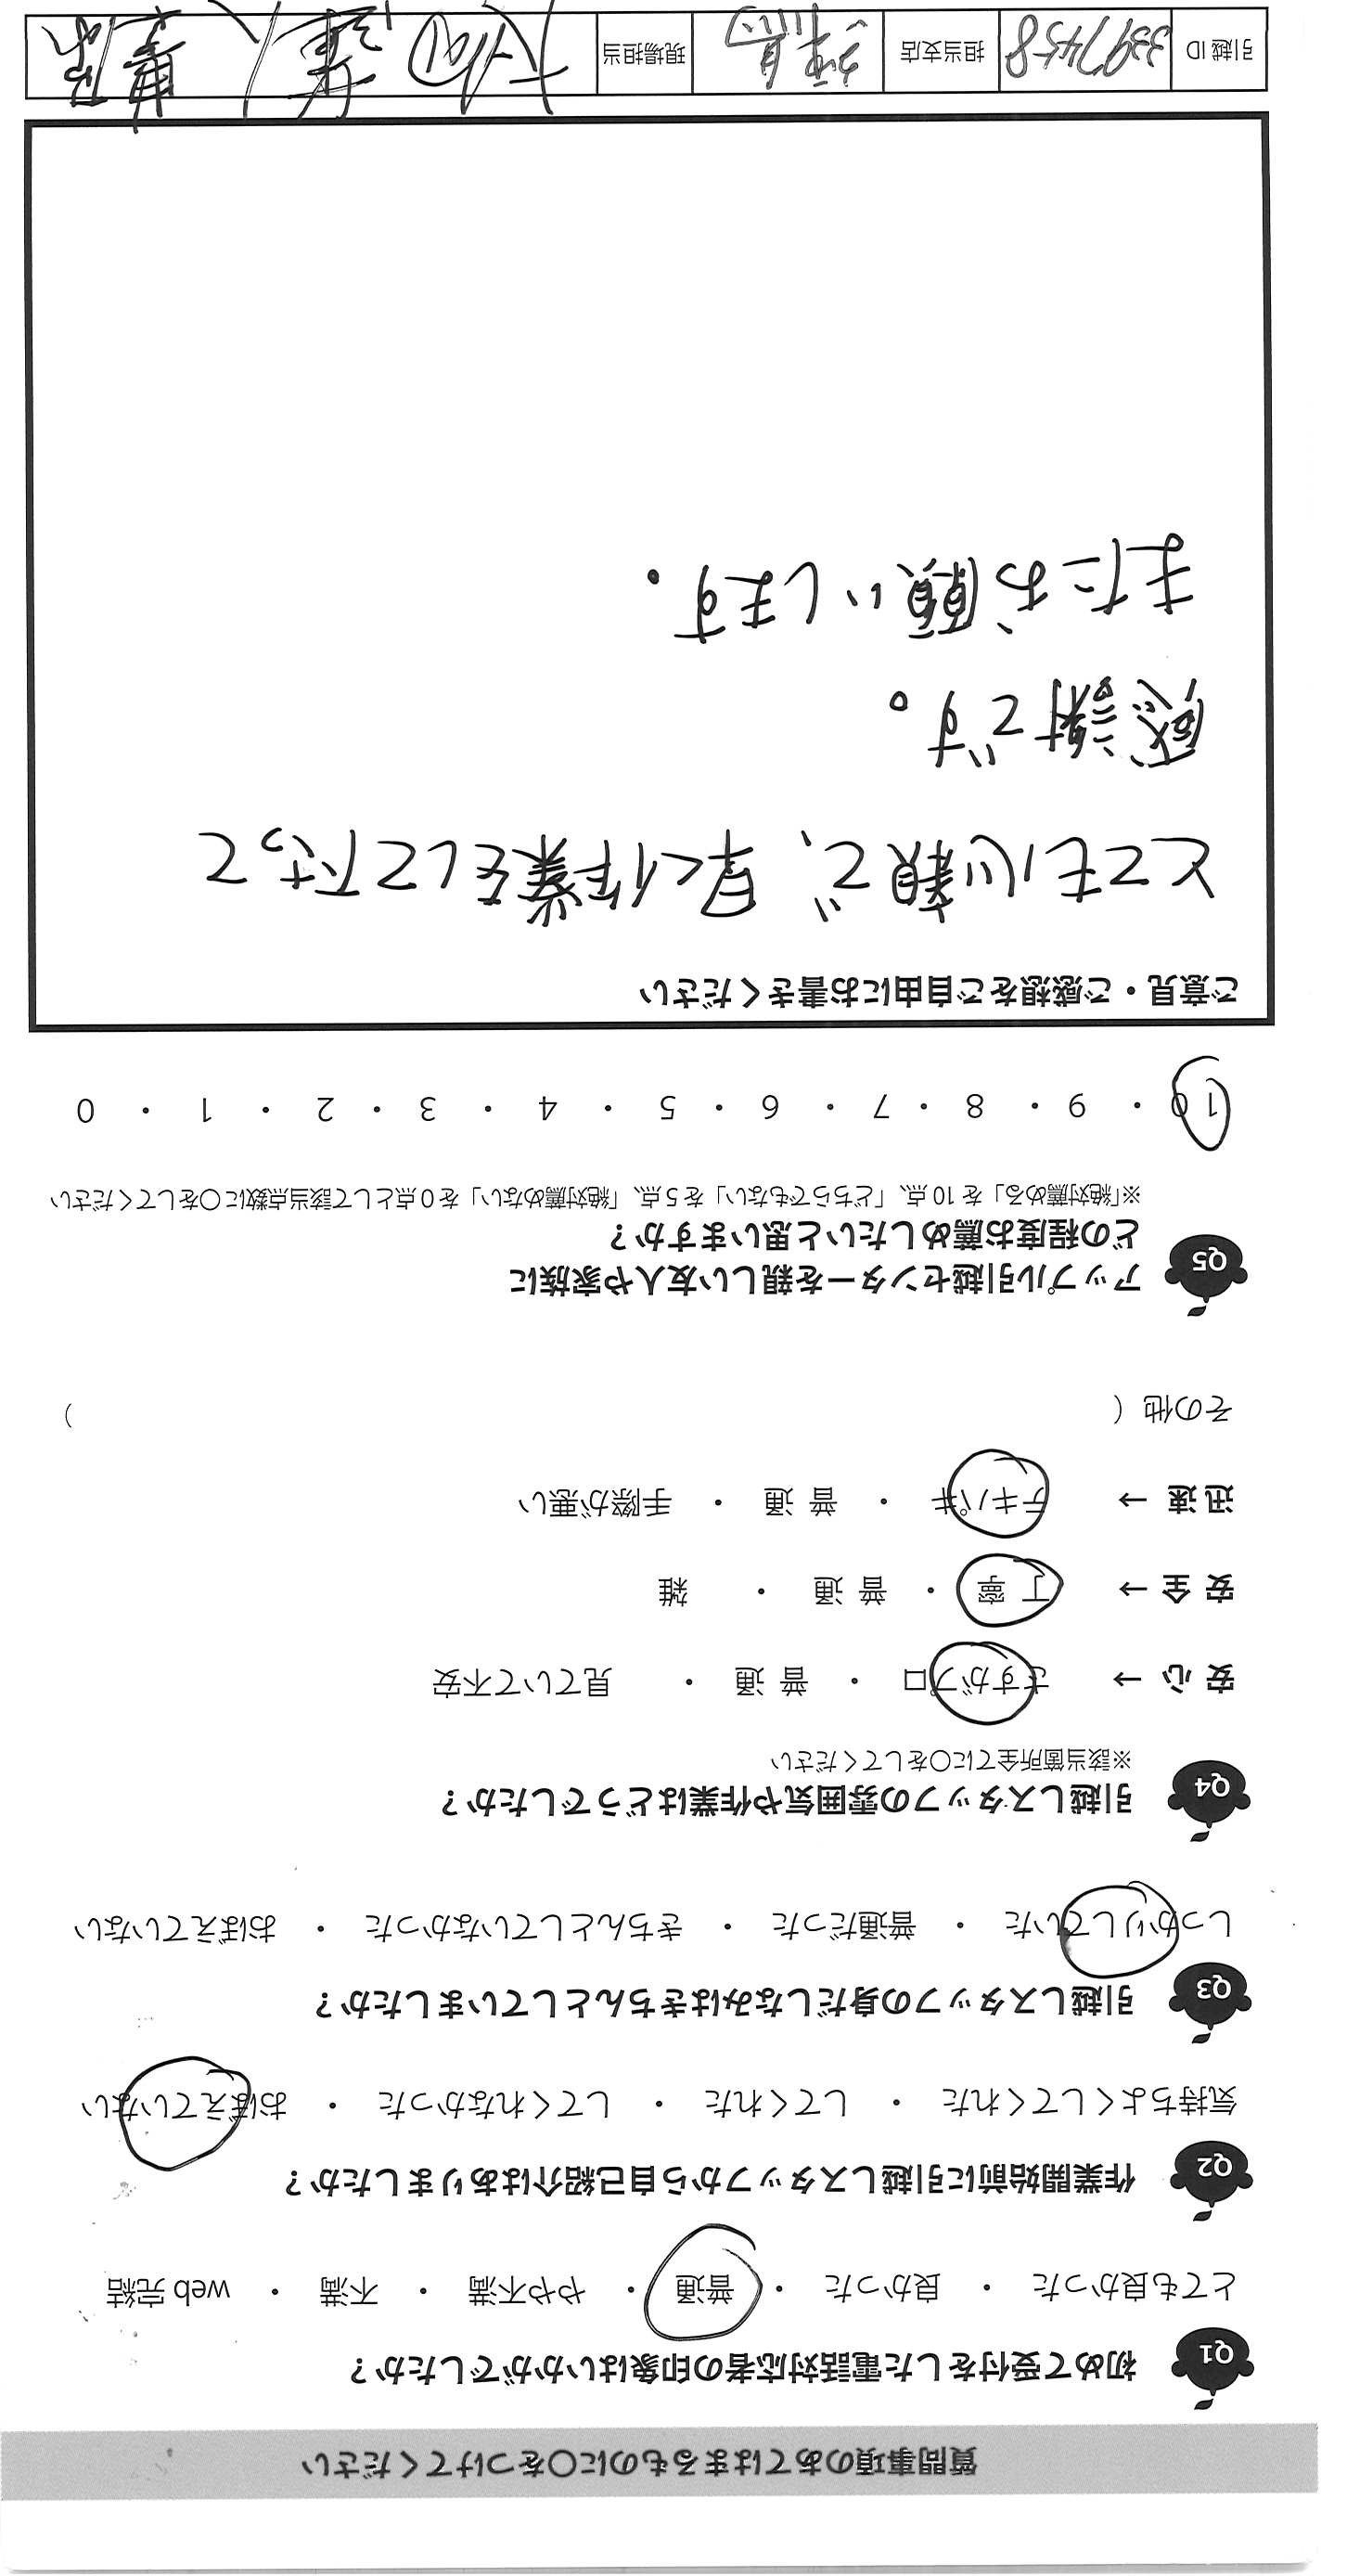 質問事項のあてはまるものに〇をつけてください
Q1 初めて受付をした電話対応者の印象はいかがでしたか？
とても良かった ・ 良かった ・ 普通 ・ やや不満 ・ 不満 ・ web 完結
Q2 作業開始前に引越しスタッフから自己紹介はありましたか？
気持ちよくしてくれた ・ してくれた ・ してくれなかった ・ おぼえていない
Q3 引越しスタッフの身だしなみはきちんとしていましたか？
しっかりしていた ・ 普通だった ・ きちんとしていなかった ・ おぼえていない
Q4 引越しスタッフの雰囲気や作業はどうでしたか？
※該当箇所全てに〇をしてください
安心 → さすがプロ ・ 普通 ・ 見ていて不安
安全 → 丁寧 ・ 普通 ・ 雑
迅速 → テキパキ ・ 普通 ・ 手際が悪い
その他（ ）
Q5 アップル引越センターを親しい友人や家族に
どの程度お薦めしたいと思いますか？
※「絶対薦める」を 10 点、「どちらでもない」を 5 点、「絶対薦めない」を 0 点として該当点数に〇をしてください
10 ・ 9 ・ 8 ・ 7 ・ 6 ・ 5 ・ 4 ・ 3 ・ 2 ・ 1 ・ 0
ご意見・ご感想をご自由にお書きください
とても心頼で、早く作業をして下さって
感謝です。
またお願いします.
引越 ID 3397458 担当支店 現場担当